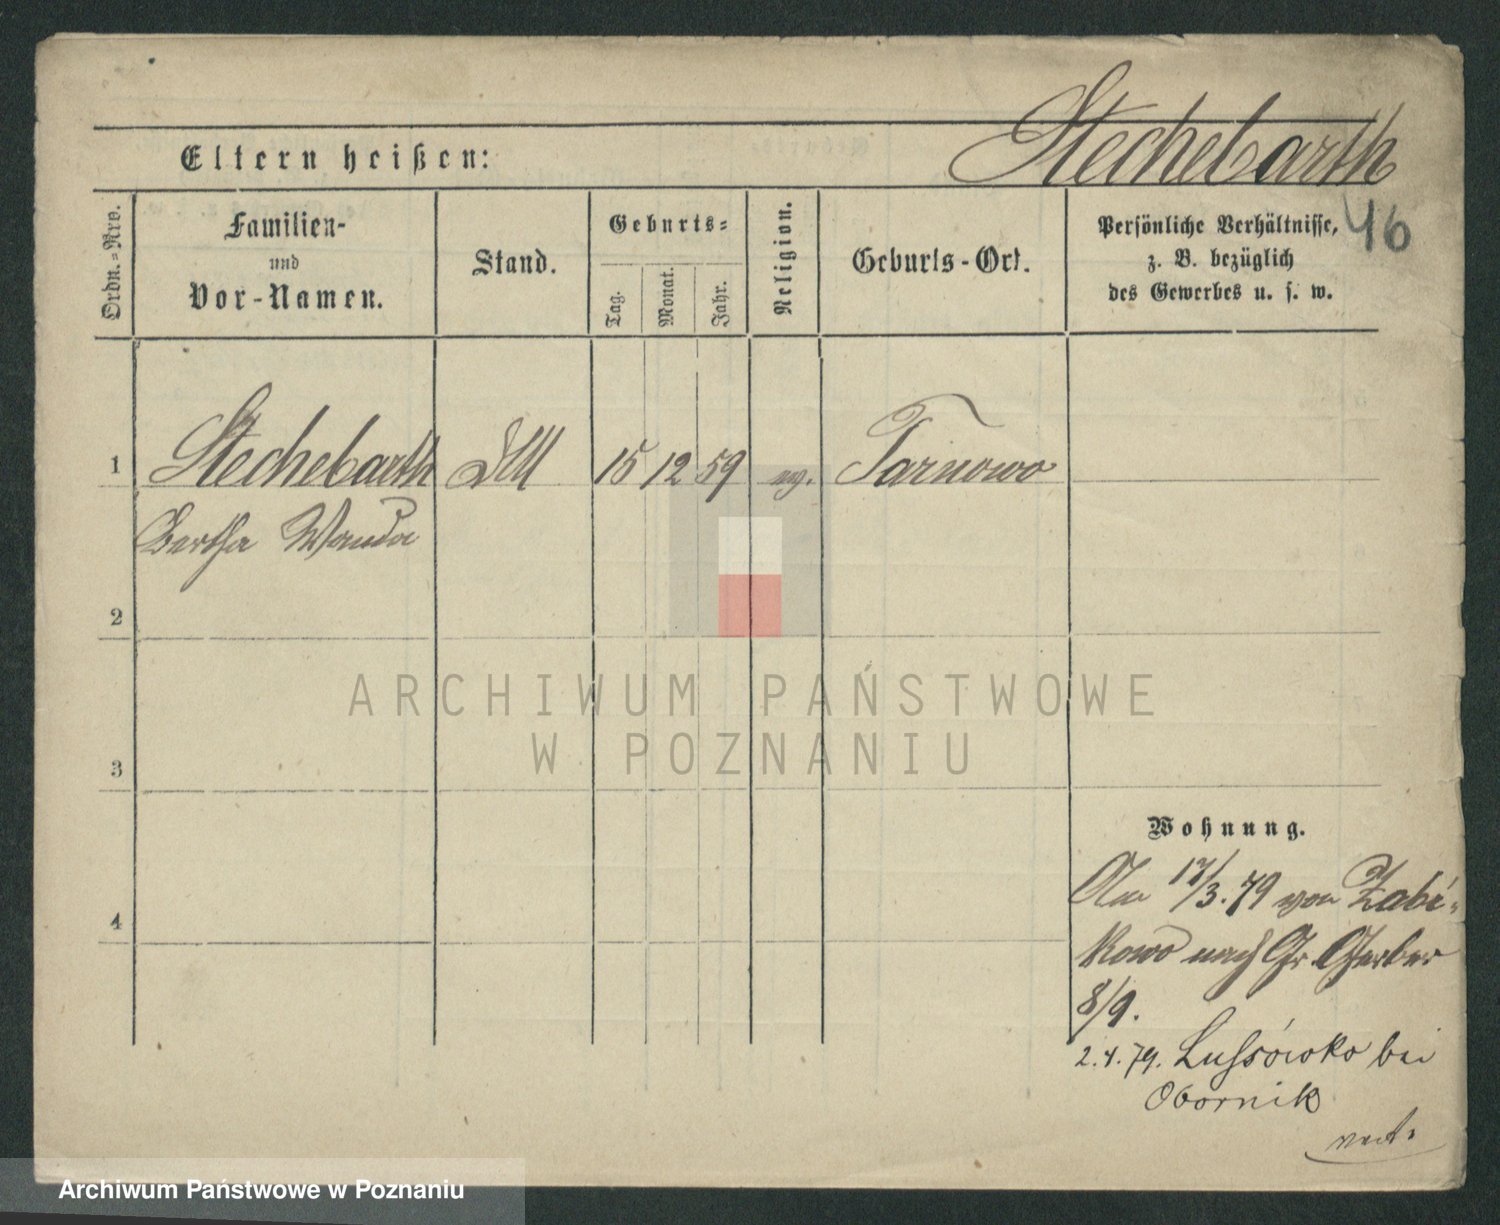 Stechebarth
Eltern heißen:
46
Ordn.=Nro.
Familien-
und
Vor-Namen.
Stand.
Geburts=
Tag.
Monat.
Jahr.
Religion.
Geburts-Ort.
Persönliche Verhältnisse,
z. B. bezüglich
des Gewerbes u. s. w.
1 Stechebarth 15 12 59 Tarnowo
Bertha Wanda
2
3
4
ARCHIWUM PAŃSTWOWE
W POZNANIU
Wohnung.
Am 17/3.79 von Zabi-
kowo nach Gr. Gerber
8/9.
2.4.79. Lussówko bei
Obornik
Archiwum Państwowe w Poznaniu